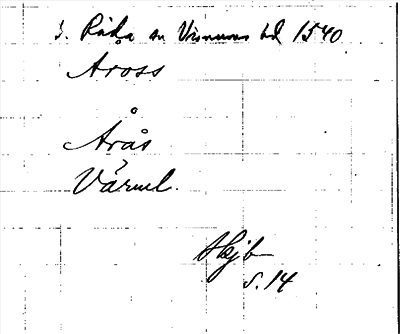 Råda sn Visnums hd 1540
Åross
Årås
Värml.
s. 14